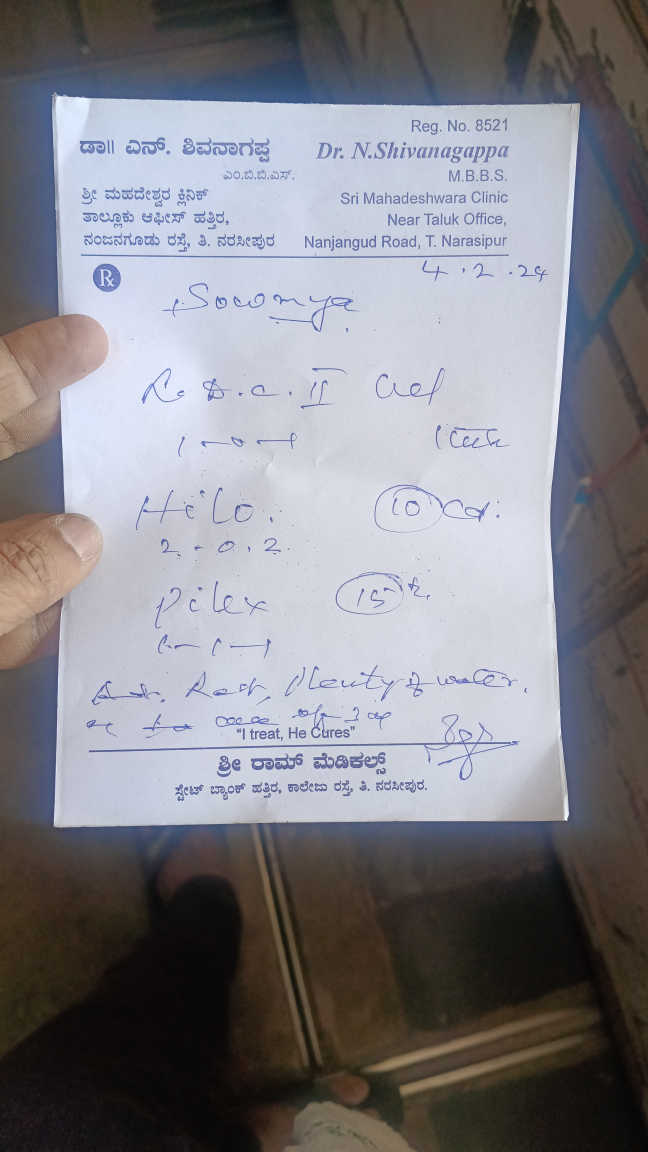 Reg. No. 8521
ಡಾ|| ಎನ್. ಶಿವನಾಗಪ್ಪ
Dr. N.Shivanagappa
ಎಂ.ಬಿ.ಬಿ.ಎಸ್.
M.B.B.S.
ಶ್ರೀ ಮಹದೇಶ್ವರ ಕ್ಲಿನಿಕ್
Sri Mahadeshwara Clinic
ತಾಲ್ಲೂಕು ಆಫೀಸ್ ಹತ್ತಿರ,
Near Taluk Office,
ನಂಜನಗೂಡು ರಸ್ತೆ, ತಿ. ನರಸೀಪುರ
Nanjangud Road, T. Narasipur
4.2.24
Rx
Sowmya
II
Hilo. 10
2.-0.2.
Pilex 15
1-1-1
Rest, Plenty of water.
"I treat, He Cures"
ಶ್ರೀ ರಾಮ್ ಮೆಡಿಕಲ್ಸ್
ಸ್ಟೇಟ್ ಬ್ಯಾಂಕ್ ಹತ್ತಿರ, ಕಾಲೇಜು ರಸ್ತೆ, ತಿ. ನರಸೀಪುರ.